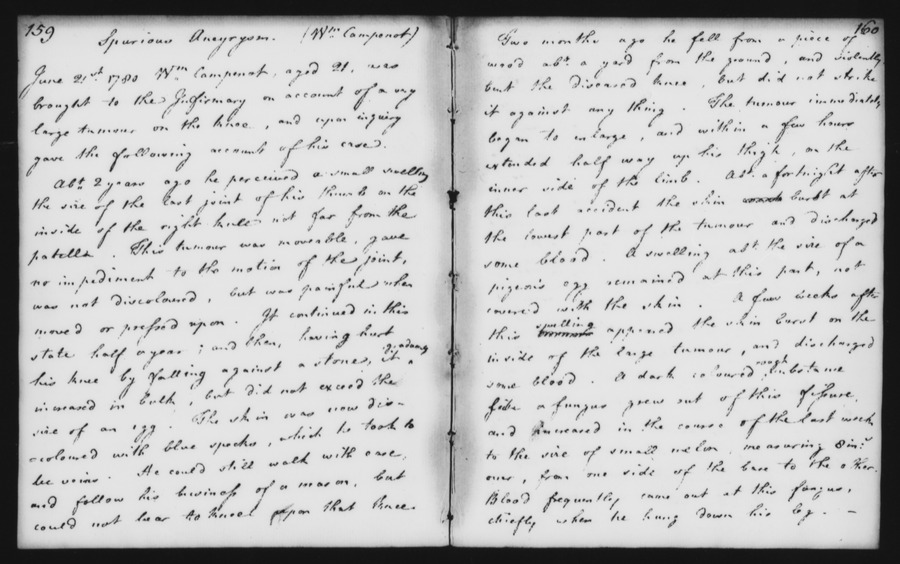 159
Spurious Aneurysm. (Wm Campenot)
June 21st 1780 Wm Campenot, aged 21, was
brought to the Infirmary on account of a very
large tumour on the knee, and upon inquiry
gave the following account of his case.
Abt. 2 years ago he perceived a small swelling
the size of the last joint of his thumb on the
inside of the right knee not far from the
patella. This tumour was moveable, gave
no impediment to the motion of the joint,
was not discoloured, but was painful when
moved or pressed upon. It continued in this
state half a year; and then, having hurt
his knee by falling against a stone, it gradually
increased in bulk, but did not exceed the
size of an egg. The skin was now dis-
coloured with blue specks, which he took to
be veins. He could still walk with ease,
and follow his business of a mason, but
could not bear to kneel upon that knee.
160
Two months ago he fell from a piece of
wood abt. a yard from the ground, and violently
bent the diseased knee, but did not strike
it against any thing. The tumour immediately
began to enlarge, and within a few hours
extended half way up his thigh, on the
inner side of the limb. Abt. a fortnight after
this last accident the skin burst at
the lowest part of the tumour and discharged
some blood. A swelling abt the size of a
pigeons egg remained at this part, not
covered with the skin. A few weeks after
this swelling appeared the skin burst on the
inside of the large tumour, and discharged
some blood. A dark coloured rough substance
like a fungus grew out of this fissure,
and increased in the course of the last week
to the size of small melon, measuring 8 ins.
over, from one side of the base to the other.
Blood frequently came out at this fungus,
chiefly when he hung down his leg. —